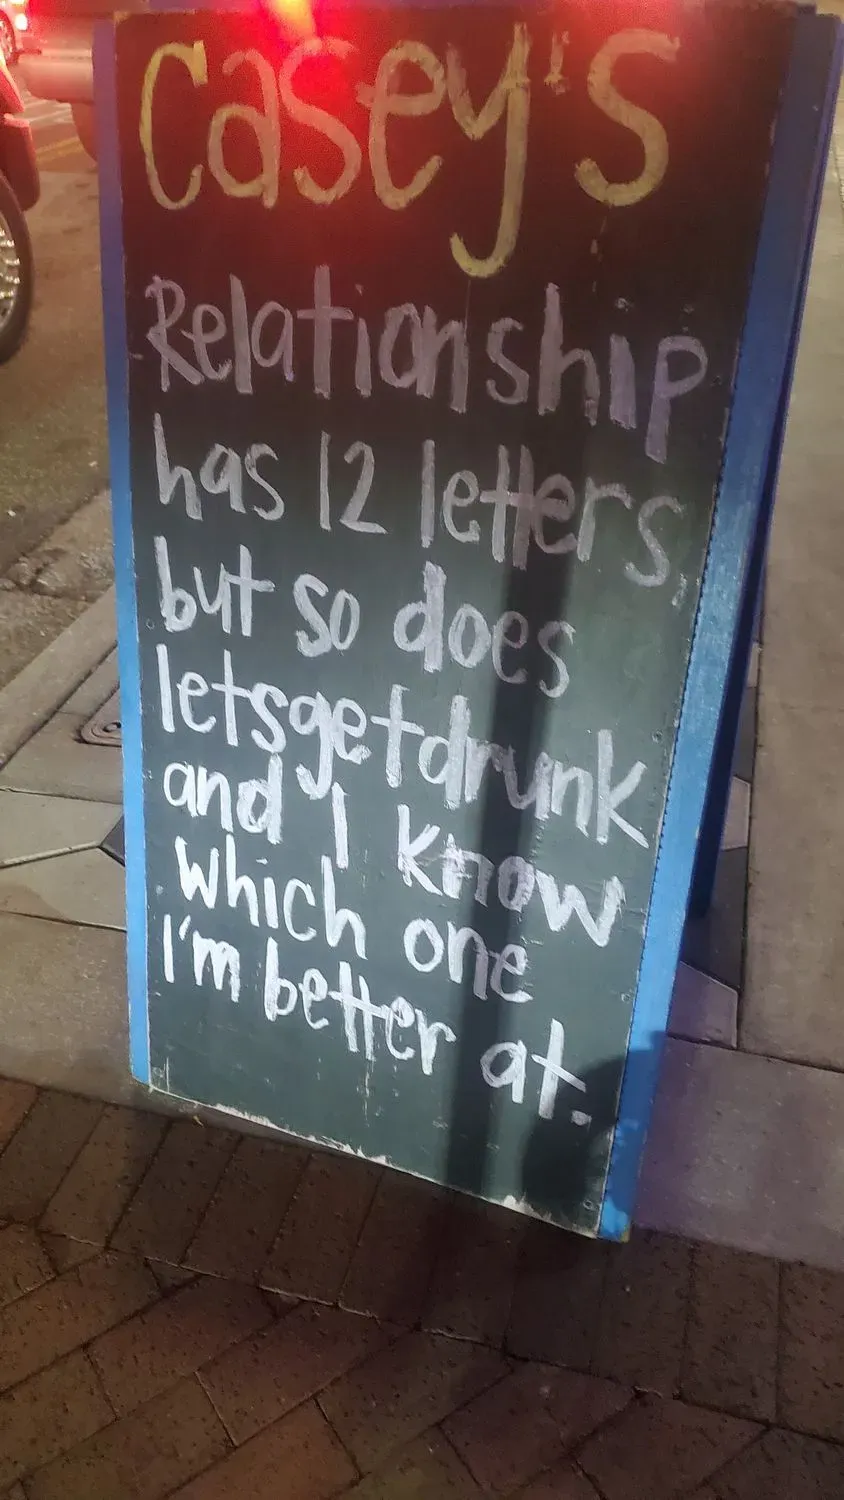 Casey's
Relationship
has 12 letters,
but so does
letsgetdrunk
and I know
which one
I'm better at.